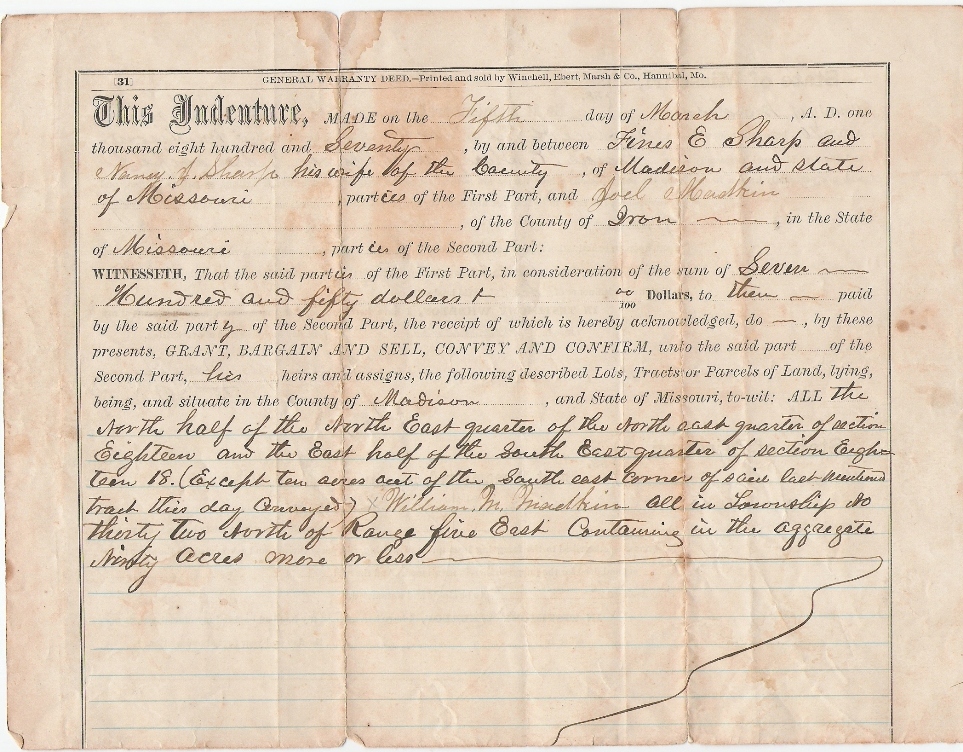 [31] GENERAL WARRANTY DEED.—Printed and sold by Winchell, Ebert, Marsh & Co., Hannibal, Mo.
This Indenture, MADE on the Fifth day of March , A. D. one
thousand eight hundred and Seventy , by and between Fines E Sharp and
Nancy J. Sharp his wife of the County , of Madison and state
of Missouri , parties of the First Part, and Joel Madkin
, of the County of Iron , in the State
of Missouri , parties of the Second Part:
WITNESSETH, That the said parties of the First Part, in consideration of the sum of Seven
Hundred and fifty dollars 00/100 Dollars, to them paid
by the said party of the Second Part, the receipt of which is hereby acknowledged, do , by these
presents, GRANT, BARGAIN AND SELL, CONVEY AND CONFIRM, unto the said part of the
Second Part, his heirs and assigns, the following described Lots, Tracts or Parcels of Land, lying,
being, and situate in the County of Madison , and State of Missouri, to-wit: ALL the
North half of the North East quarter of the North east quarter of section
Eighteen and the East half of the South East quarter of section Eigh-
teen 18. (Except ten acres out of the South east corner of said last mentioned
tract this day conveyed) William M. Madkin all in Township No
thirty two North of Range five East Containing in the aggregate
Ninty Acres more or less